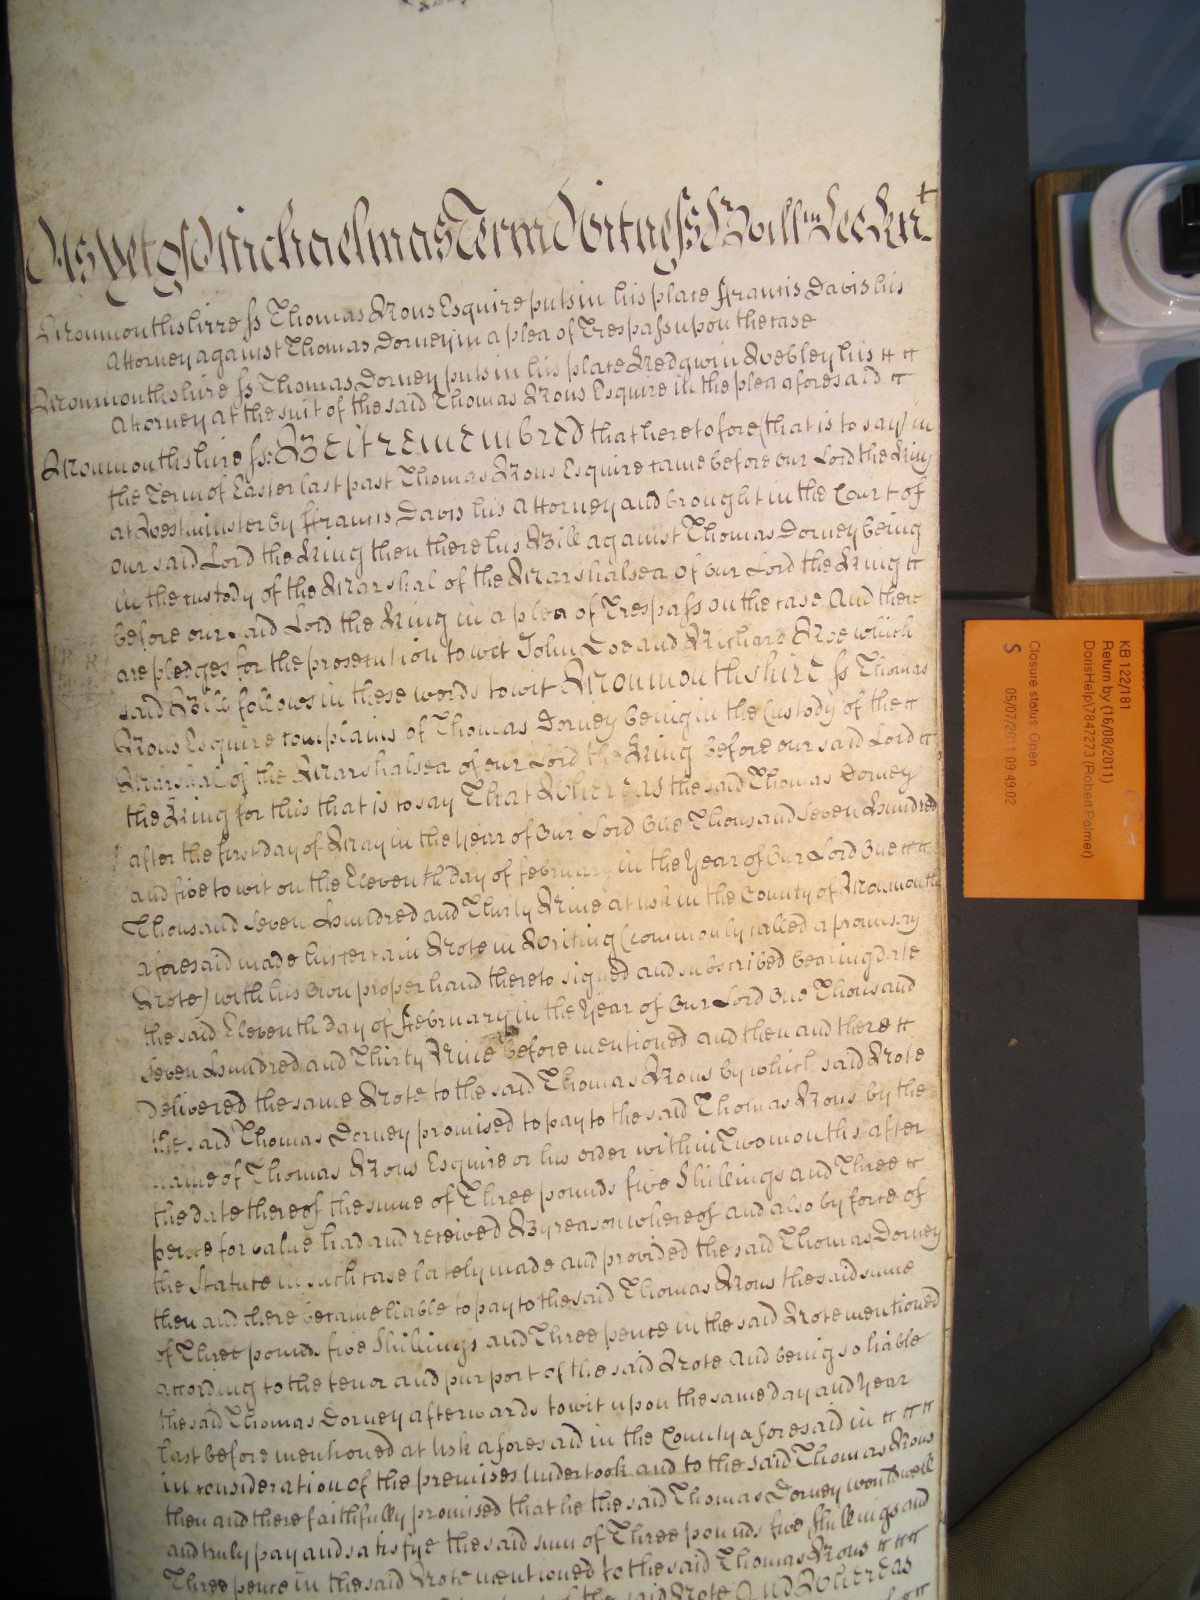 As yet of Michaelmas Term Witness Will:m Lee Kn:t
Monmouthshire ss Thomas Rous Esquire puts in his place Francis Davis his
Attorney against Thomas Dorney in a plea of Trespass upon the case
Monmouthshire ss Thomas Dorney puts in his place Redgwin Webley his
Attorney at the suit of the said Thomas Rous Esquire in the plea aforesaid
Monmouthshire ss: Be it remembred that heretofore (that is to say) in
the Term of Easter last past Thomas Rous Esquire came before our Lord the King
at Westminster by Francis Davis his Attorney and brought in the Court of
our said Lord the King then there his Bill against Thomas Dorney being
in the custody of the Marshal of the Marshalsea of our Lord the King
before our said Lord the King in a plea of Trespass on the case And there
are pledges for the prosecution to wit John Doe and Richard Roe which
said Bill follows in these words to wit Monmouthshire ss Thomas
Rous Esquire complains of Thomas Dorney being in the Custody of the
Marshal of the Marshalsea of our Lord the King before our said Lord
the King for this that is to say That Whereas the said Thomas Dorney
after the first day of May in the Year of Our Lord One Thousand Seven Hundred
and five to wit on the Eleventh day of february in the Year of Our Lord One
Thousand Seven Hundred and Thirty Nine at Usk in the County of Monmouth
aforesaid made his certain Note in Writing (commonly called a promissary
Note) with his Own proper hand thereto signed and subscribed bearing date
the said Eleventh Day of February in the Year of Our Lord One Thousand
Seven Hundred and Thirty Nine before mentioned and then and there
Delivered the same Note to the said Thomas Rous by which said Note
the said Thomas Dorney promised to pay to the said Thomas Rous by the
name of Thomas Rous Esquire or his order within Two months after
the date thereof the sume of Three pounds five Shillings and Three
pence for value had and received By reason whereof and also by force of
the Statute in such case lately made and provided the said Thomas Dorney
then and there became liable to pay to the said Thomas Rous the said sume
of Three pounds five Shillings and Three pence in the said Note mentioned
according to the tenor and purport of the said Note And being so liable
the said Thomas Dorney afterwards to wit upon the same day and Year
last before mentioned at Usk aforesaid in the County aforesaid in
in consideration of the premises Undertook and to the said Thomas Rous
then and there faithfully promised that he the said Thomas Dorney would well
and truly pay and satisfye the said sum of Three pounds five Shillings and
Three pence in the said Note mentioned to the said Thomas Rous
the said Note And Whereas
KB 122/181
Return by (16/08/2011)
DorisHelp\7847273 (Robert Palmer)
Closure status: Open
05/07/2011 09:49:02
S